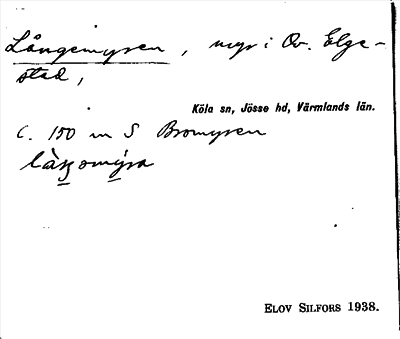 Långemyren, myr i Öv. Elge-
stad,
Köla sn, Jösse hd, Värmlands län.
c. 150 m S Bromyren
ELOV SILFORS 1938.